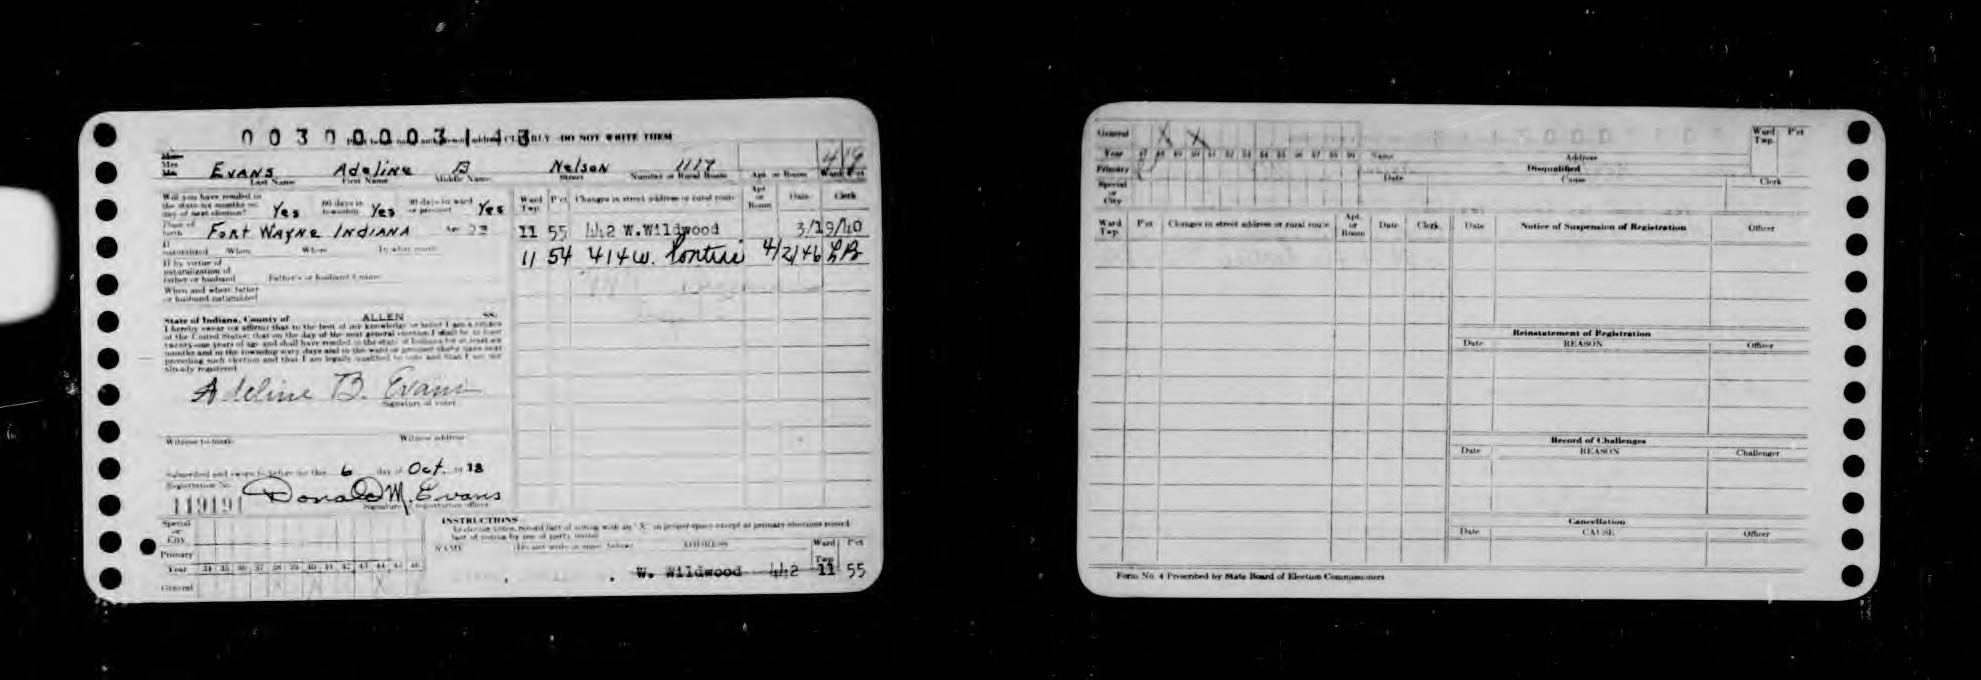 0 0 3 0 0 0 0 3 1 4 3
CLEARLY—DO NOT WRITE THEM
Mrs. EVANS Adeline B Nelson 1117 4 19
Last Name First Name Middle Name Street Number or Rural Route Apt. or Room Ward Pct
Will you have resided in
the state six months on 60 days in 30 days in ward
any of next election? Yes township Yes or precinct Yes
Ward Twp. P'ct Changes in street address or rural route Apt. or Room Date Clerk
Place of birth FORT WAYNE INDIANA
11 55 442 W.Wildwood 3/19/40
11 54 414 W. Pontiac 4/2/46 LB
If naturalized When Where In what court
If by virtue of
naturalization of
father or husband Father's or husband's name
When and where father
or husband naturalized
State of Indiana, County of ALLEN SS:
I hereby swear (or affirm) that to the best of my knowledge or belief I am a citizen
of the United States; that on the day of the next general election I shall be at least
twenty-one years of age and shall have resided in the state of Indiana for at least six
months and in the township sixty days and in the ward or precinct thirty days next
preceding such election and that I am legally qualified to vote and that I am not
already registered.
Adeline B. Evans
Signature of voter
Witness to mark Witness address
Subscribed and sworn to before me this 6 day of Oct. 19 38
Registration No.
119191 Donald M. Evans
Signature of registration officer
Special
or
City
Primary
Year 34 35 36 37 38 39 40 41 42 43 44 45 46
General X X X
INSTRUCTIONS
NAME (Do not write in space below) ADDRESS Ward Twp P'ct
W. Wildwood 442 11 55
General X X
Year 47 48 49 50 51 52 53 54 55 56 57 58 59 60
Name Address
Ward Twp. P'ct
Primary
Disqualified
Special
or
City
Date Cause Clerk
Ward Twp. P'ct Changes in street address or rural route Apt. or Room Date Clerk
Date Notice of Suspension of Registration Officer
Reinstatement of Registration
Date REASON Officer
Record of Challenges
Date REASON Challenger
Cancellation
Date CAUSE Officer
Form No. 4 Prescribed by State Board of Election Commissioners